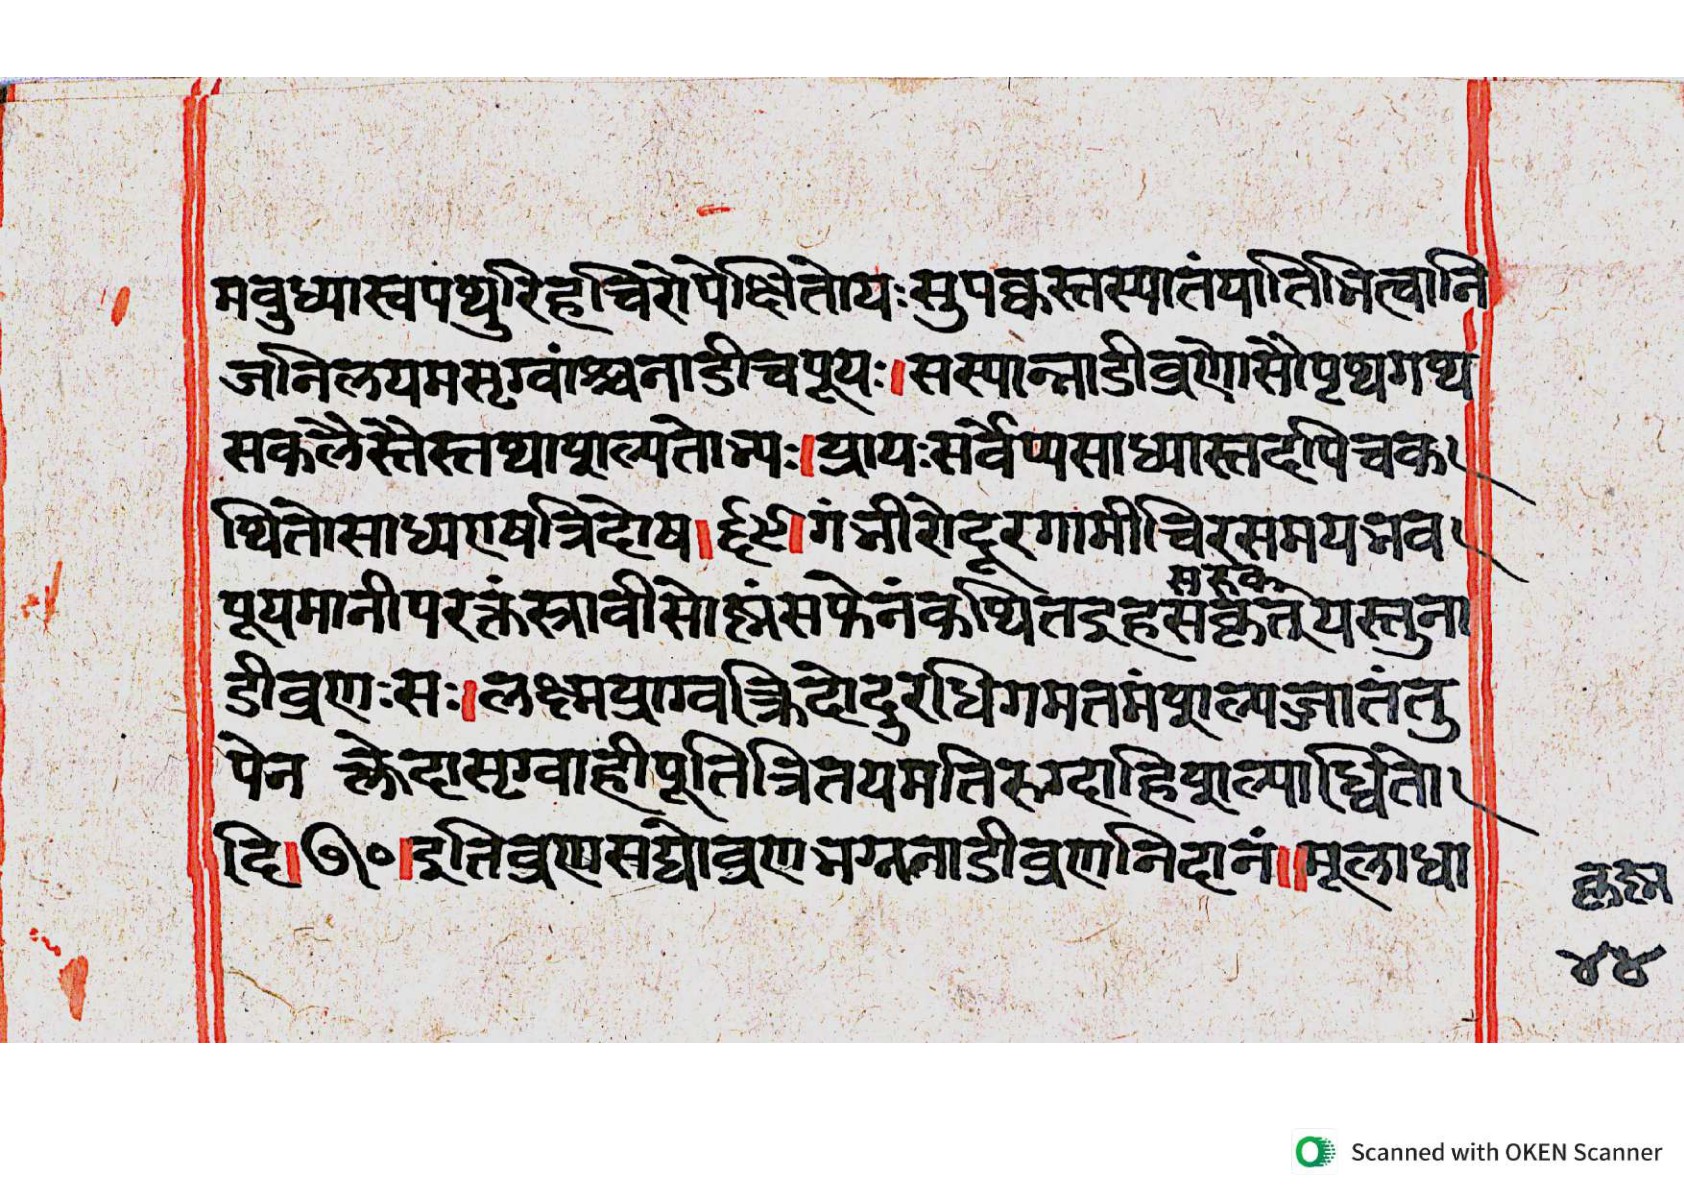 मबुध्यास्वपथ्युरिहचिरोपेक्षितोयःसुपक्वस्तस्यातंयातिभित्वानि
जनिलयमसृग्वांश्चनाडीचपूयः।सस्यान्नाडीव्रणोसौपृथगथ
सकलैस्तैस्तथाशल्यतोभ्यः।प्रायःसर्वेप्यसाध्यास्तदपिचक
थितोसाध्यएषत्रिदोष।६९।गंभीरोदूरगामीचिरसमयभव
सरुक
पूयमानीपरक्तंस्रावीसोष्मंसफेनंकथितइहसकृतूयस्तुना
डीव्रणःसः।लक्ष्मप्राग्वत्त्रिदोदुरधिगमतमंशल्यजातंतु
पेन क्लेदासृग्वाहीपूतित्रितयमतिरुग्दाहिशल्यार्द्धितो
दि।७०।इतिव्रणसद्योव्रणभग्ननाडीव्रणनिदानं॥मूलाधा
४४
Scanned with OKEN Scanner